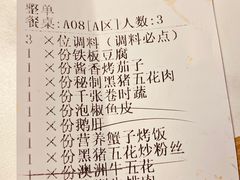 整单
餐桌:A08[A区]人数:3
3 ×位调料(调料必点)
1 ×份铁板豆腐
1 ×份酱香烤茄子
1 ×份秘制黑猪五花肉
1 ×份千张卷时蔬
1 ×份泡椒鱼皮
1 ×份鹅肝
1 ×份营养蟹子烤饭
1 ×份黑猪五花炒粉丝
1 ×份澳洲牛五花